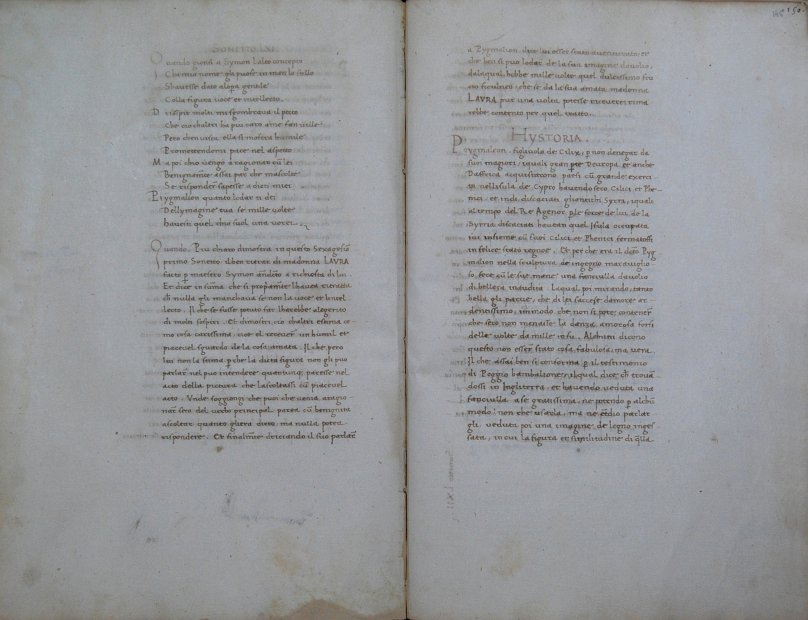 SONETTO LXI
Quando gionsi a Symon lalto concepto
Cha mio nome gli puose in man lo stile
Shavesse dato alopra gentile
Colla figura voce et intellecto.
Di sospir molti mi sgombrava il petto
Che cio chaltri ha piu caro a me fan vile
Pero chen vista ella si mostra humile
Promettendomi pace nel aspetto
Ma poi chio vengo a ragionar cū lei
Benignamte assai par che mascolte
Se rispōder sapesse a dicti miei
Pigmalion quanto lodar ti dei
Dellymagine tua se mille volte
havesti quel chio sol una vorrei.
Quando. Piu chiaro dimostra in questo Sexagesīo
primo Sonetto il ben ritrar di madonna LAURA
facto p maestro Symon a richiesta di lui
Et dice in sūma che si propamte lhavea ritratta
ch nulla gli manchava se non la voce et lintel
lecto. Il che se fusse potuto far lharebbe alegerito
di molti sospiri. Et dimostri, cio chaltri estima co
mo cosa carissima, cioe el recever un humil et
piacevel sguardo de la cosa amata. Il che pero
lui non la stima p che la dicta figura non gli puo
parlar nel puo intendere quantunq paresse nel
acto della pictura che lascoltassi cū piacevel
acto. Unde soggiongi che puoi che venia aragio
nar sera del verbo principal parea cū benignita
ascoltar quanto glera dicto, ma nulla potea
rispondere. Et finalmte driciando il suo parlar
150.
a Pygmalion dice lui esser stato aventurato, et
che ben si puo lodar de la sua imagine davolio,
dalaqual hebbe mille volte quel dulcissimo fru
che se da la sua amata madonna
LAURA pur una volta potesse ricevere rima
rebbe contento per quel tratto.
HYSTORIA
Pygmaleon. figliuolo de Cilix, p non denegar da
suoi magiori, iquali gran pte Deuropa et anche
Daffrica acquistorono, partì cū grande exerci
in nellisula de Cypro havendo seco Cilici et Phe
nici et indi discaciati gliantichi Syrra, iquali
al tempo del Re Agenor, ple forze de lui de la
Syrria discaciati havean quel Isula occupata
ivi insieme cū suoi Cilici et Phenici fermatossi
in felice stato regnoe. Et per che era il decto Pyg
malion nella sculptura de ingegno maraviglio
so, fece cū le sue mane una fanciulla davolio
di belleza inaudita. Laqual poi mirando, tanto
bella gli parve, che di lei saccese damore ar
dentissimo, inmodo che non si pote contener
che seco non menasse la danza amorosa forsi
delle volte da mille in su. Alchuni dicono
questo non esser stato cosa fabulosa, ma vera.
Il che assai ben si conferma p il testimonio
di Poggio bambalione, ilqual dice, ch trova
dossi in Ingliterra et havendo veduta una
fanciulla a se gratissima, ne potendo p alchū
modo non che usarla, ma ne ēdio parlar
gli. veduta poi una imagine de legno inges
sata, in cui la figura et similitudine di qlla
Sonetto LXII